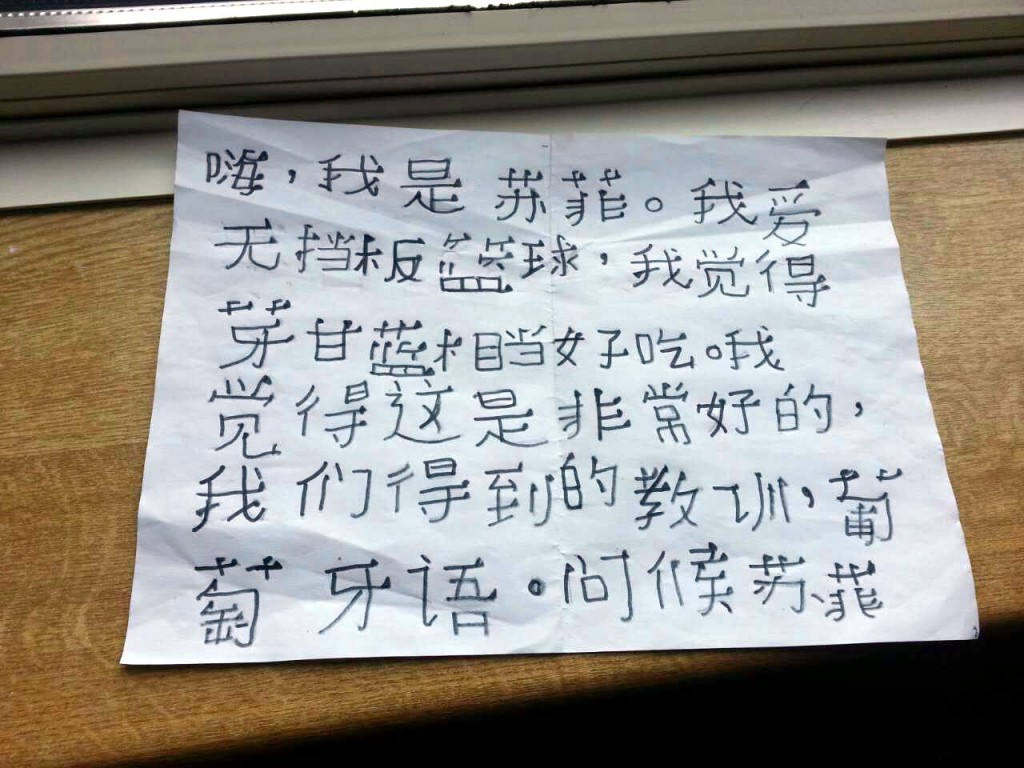 嗨，我是苏菲。我爱
无挡板篮球，我觉得
芽甘蓝相当好吃。我
觉得这是非常好的，
我们得到的教训，葡
萄牙语。问候苏菲